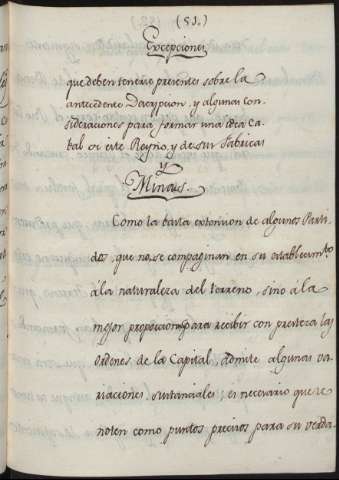 (51.)
Excepciones
que deben tenerse presentes sobre la
antecedente Descripcion, y algunas con-
sideraciones para formar una idea ca-
bal de este Reyno, y de sus fabricas
y
Minas.
Como la basta extension de algunos Parti-
dos, que no se compaginan en su establecimto
á la naturaleza del terreno, sino á la
mejor proporcion para recibir con presteza las
ordenes de la Capital, admite algunas va-
riaciones sustanciales; es necesario que se
noten como puntos precisos para su verda-